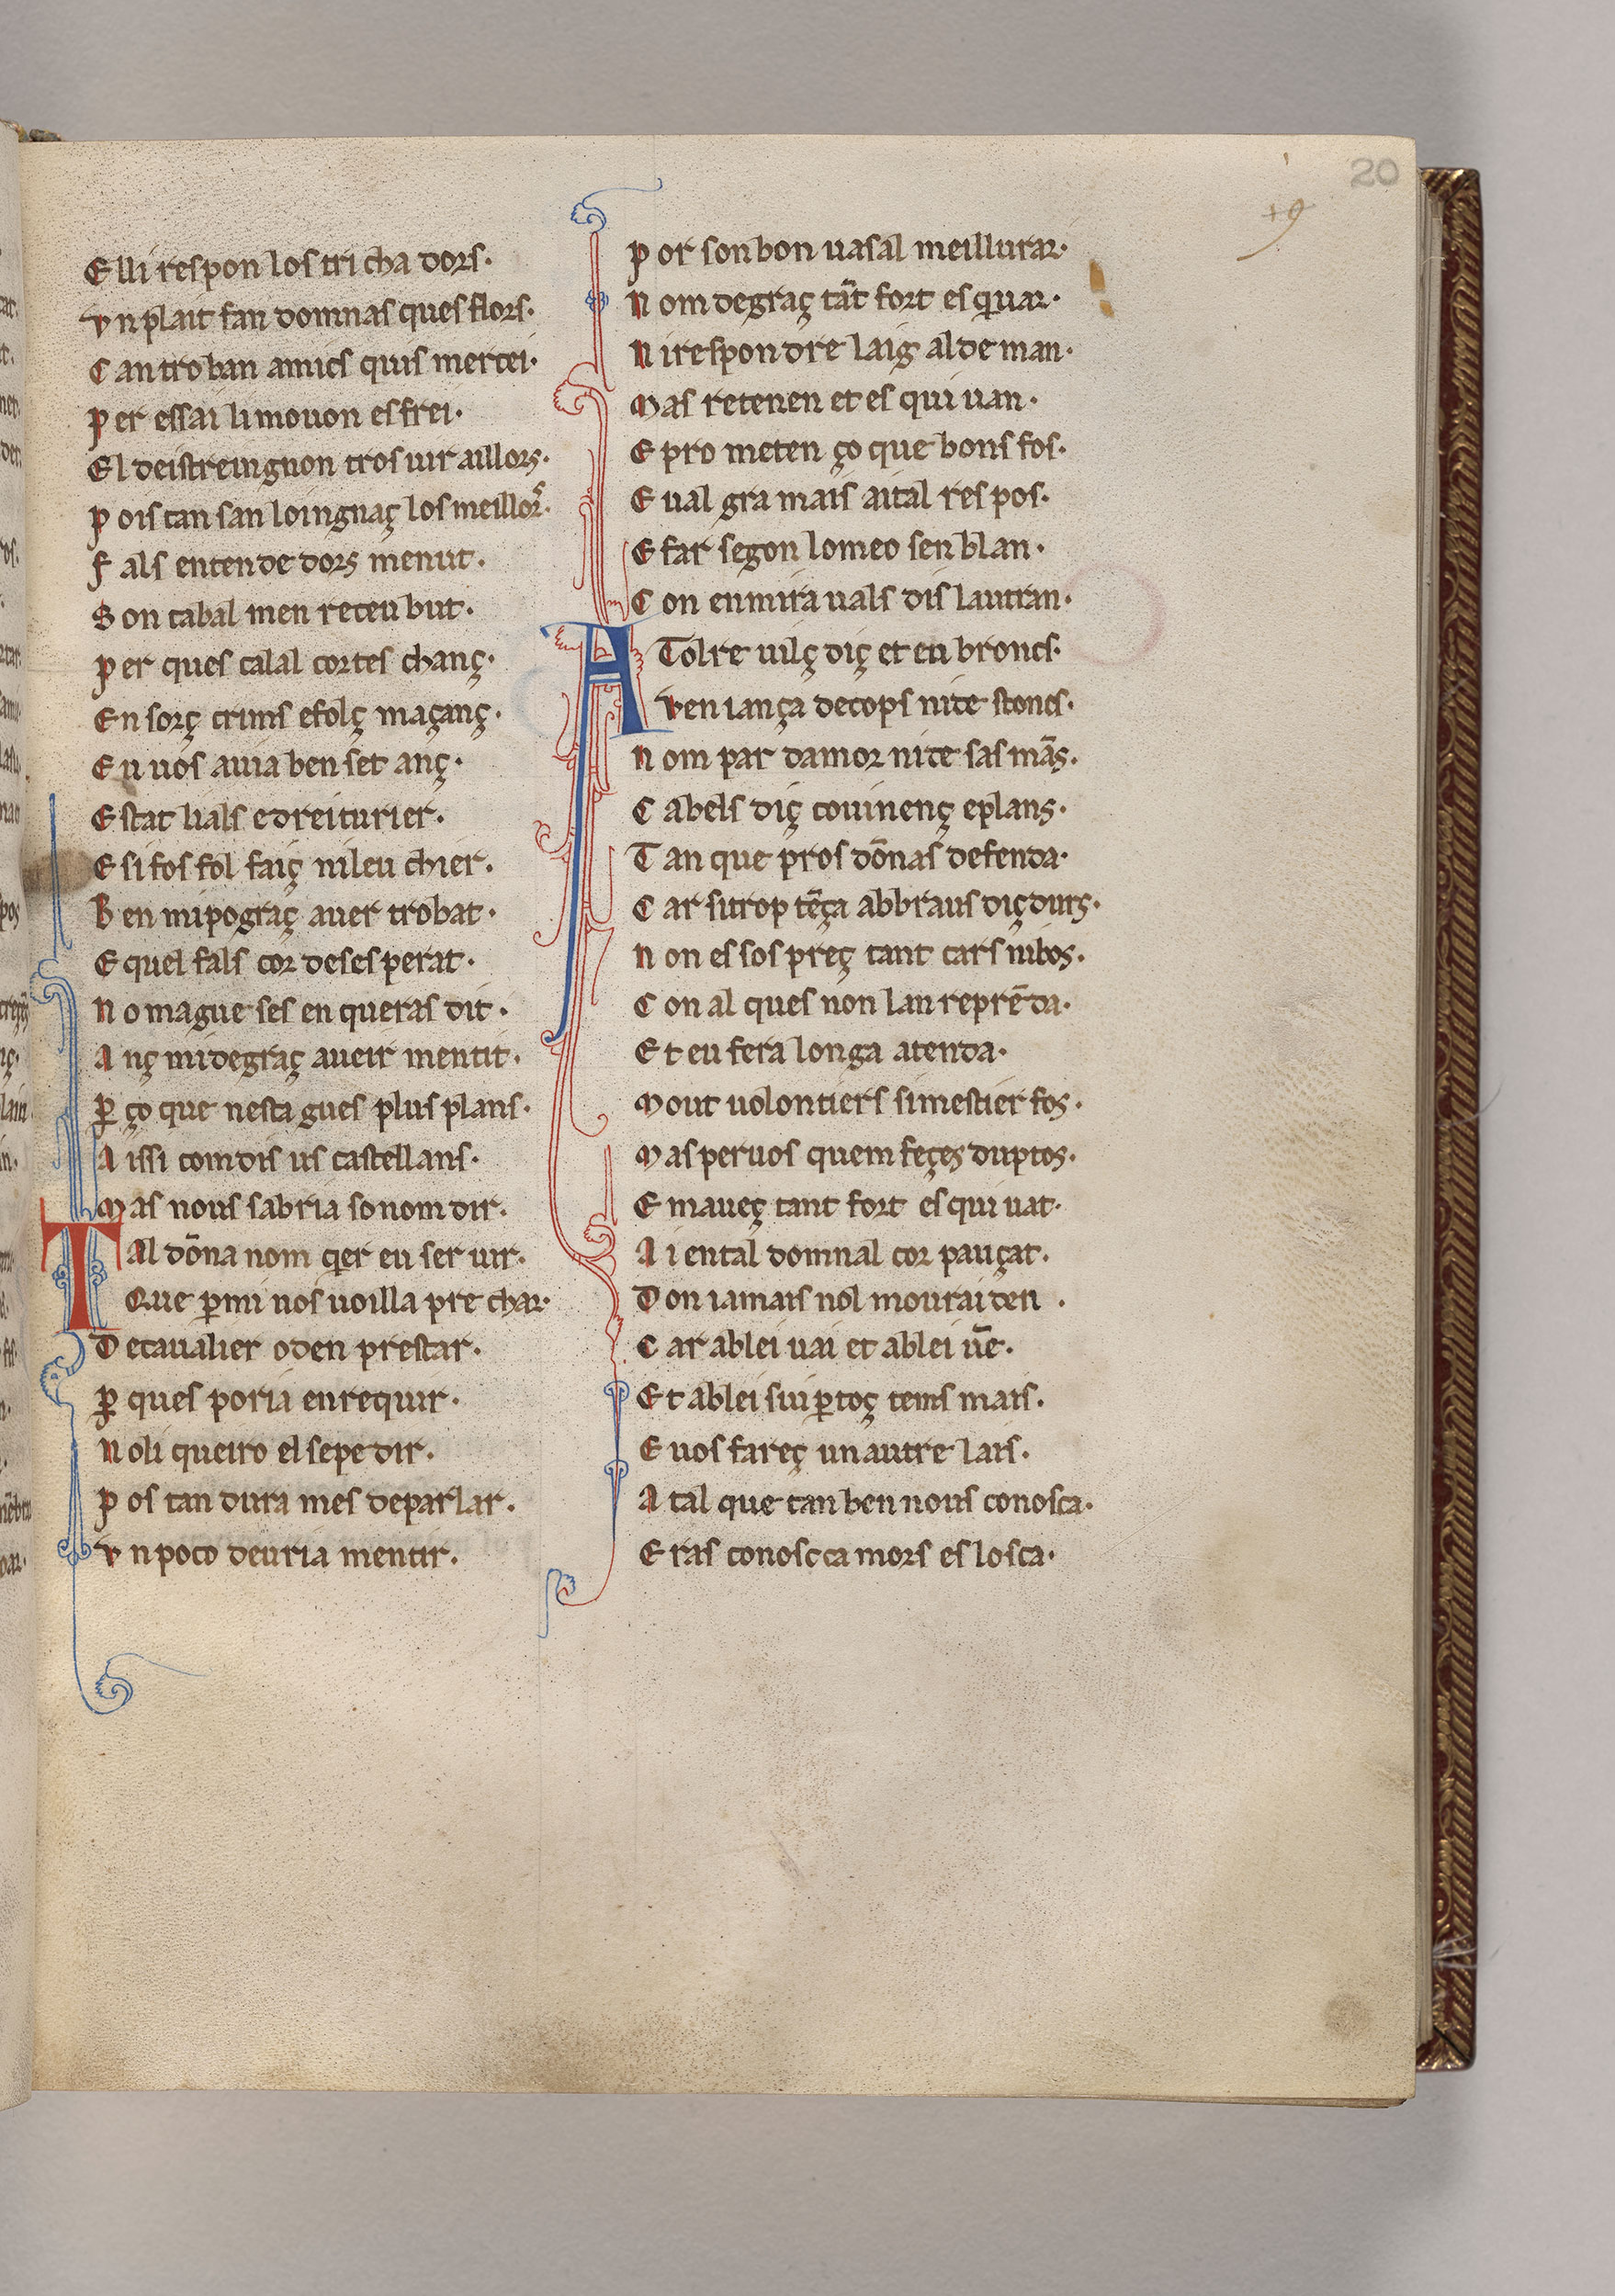 20
19
E lli respon los tri cha dors·
V n plait fan domnas ques flors·
C an tro ban amics quis mercei·
P er essai li mouon esfrei·
E l deistreingnon tros uir aillors·
P ois tan san loingnaç los meillors·
F als entende dors menut·
S on cabal men receu but·
P er ques calal cortes chanç·
E n sorç cruns efolç maçanç·
E u uos auia ben set anç·
E stat lials e dreiturier·
E si fos fol faiç nileu chier·
B en mi pograç auer trobat·
E quel fals cor deses perat·
N o mague ses en queras dit·
A nç mi degraç aueir mentit·
ꝑ ço que nesta gues plus plans·
A issi com dis us castellans·
M as nous sabria so nom dir·
T Al dōna nom qer eu ser uir·
Que ꝑmi nos uoilla pre char·
D e caualier o den prestar·
ꝑ ques poria enrequir·
N oli queiro el sepe dir·
P os tan dura mes de parlar·
V n poco deuria mentir·
P or son bon uasal meillurar·
N om degraç tāt fort esquar·
N i respondre laig al de man·
M as retenen et es qui uan·
E pro meten ço que bons fos·
E ual gra mais aital res pos·
E far segon lo meo sen blan·
C on en mira uals dis lautran·
A Tolre uilç diç et en broncs·
Ven iança de cops ni te stoncs·
N om par damor ni te sas mās·
C ab els diç couinenç e plans·
T an que pros dōnas defenda·
C ar sutrop tēça ab braus diç durs·
N on es sos preç tant cars ni bos·
C on al ques non lan reprēda·
E t eu fera longa atenda·
M out uolontiers si mestier fos·
M as per uos quem feçes duptos·
E m aueç tant fort es qui uat·
A i en tal domnal cor pauçat·
D on iamais nol mourai ren·
C ar ab lei uai et ab lei uē·
E t ab lei sui ꝑ toç tems mais·
E uos fareç un autre lais·
A tal que tan ben nous conosca·
E ras conosc ca mors es losca·